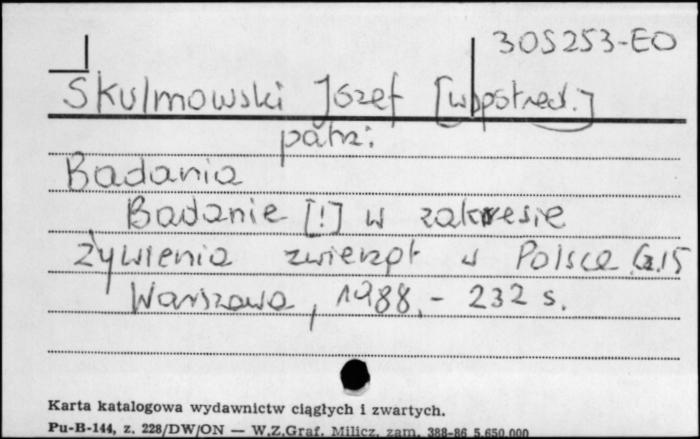 305253-EO
Skulmowski Józef [współred.]
patrz:
Badania
Badanie [!] w zakresie
żywienia zwierząt w Polsce Cz.15
Warszawa, 1988.- 232 s.
Karta katalogowa wydawnictw ciągłych i zwartych.
Pu-B-144, z. 228/DW/ON — W.Z.Graf. Milicz, zam. 388-86 5.650.000